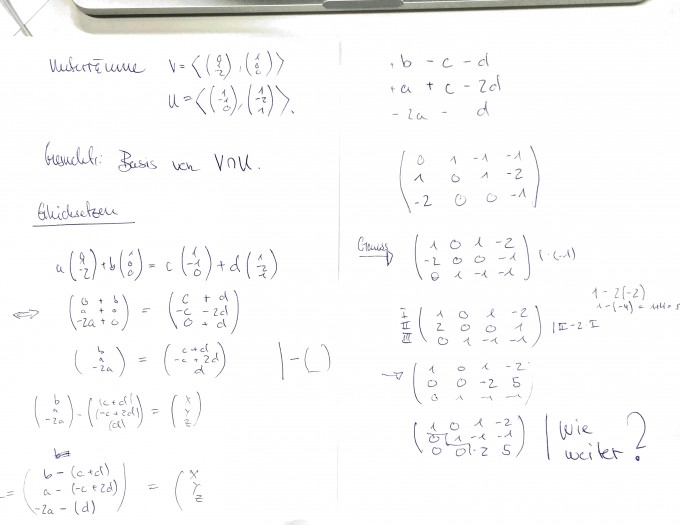 Unterräume V = ⟨(0 1 -2), (1 0 0)⟩
U = ⟨(1 -1 0), (1 -2 1)⟩.
Gesucht: Basis von V∩U.
Gleichsetzen
a (0 1 -2) + b (1 0 0) = c (1 -1 0) + d (1 2 1)
⇔ (0 + b, a + 0, -2a + 0) = (c + d, -c - 2d, 0 + d)
(b, a, -2a) = (c+d, -c+2d, d) | - ( )
(b, a, -2a) - ((c+d), (-c+2d), (d)) = (x y z)
= (b - (c+d), a - (-c+2d), -2a - (d)) = (x y z)
+b - c - d
+a + c - 2d
-2a - d
0 1 -1 -1
1 0 1 -2
-2 0 0 -1
Gauss
1 0 1 -2
-2 0 0 -1 | · (-1)
0 1 -1 -1
1 - 2(-2)
1 - (-4) = 1+4 = 5
I 1 0 1 -2
II 2 0 0 1 | II - 2·I
III 0 1 -1 -1
→ 1 0 1 -2
0 0 -2 5
0 1 -1 -1
1 0 1 -2
0 1 -1 -1
0 0 -2 5
| Wie weiter?